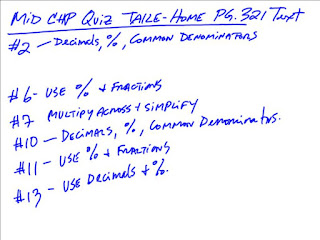 MID CHP QUIZ TAKE-HOME PG. 321 Text
#2 - DECIMALS, %, COMMON DENOMINATORS
#6 - USE % + FRACTIONS
#7 MULTIPLY ACROSS + SIMPLIFY
#10 - DECIMALS, %, COMMON DENOMINATORS.
#11 - USE % + FRACTIONS
#13 - USE DECIMALS + %.